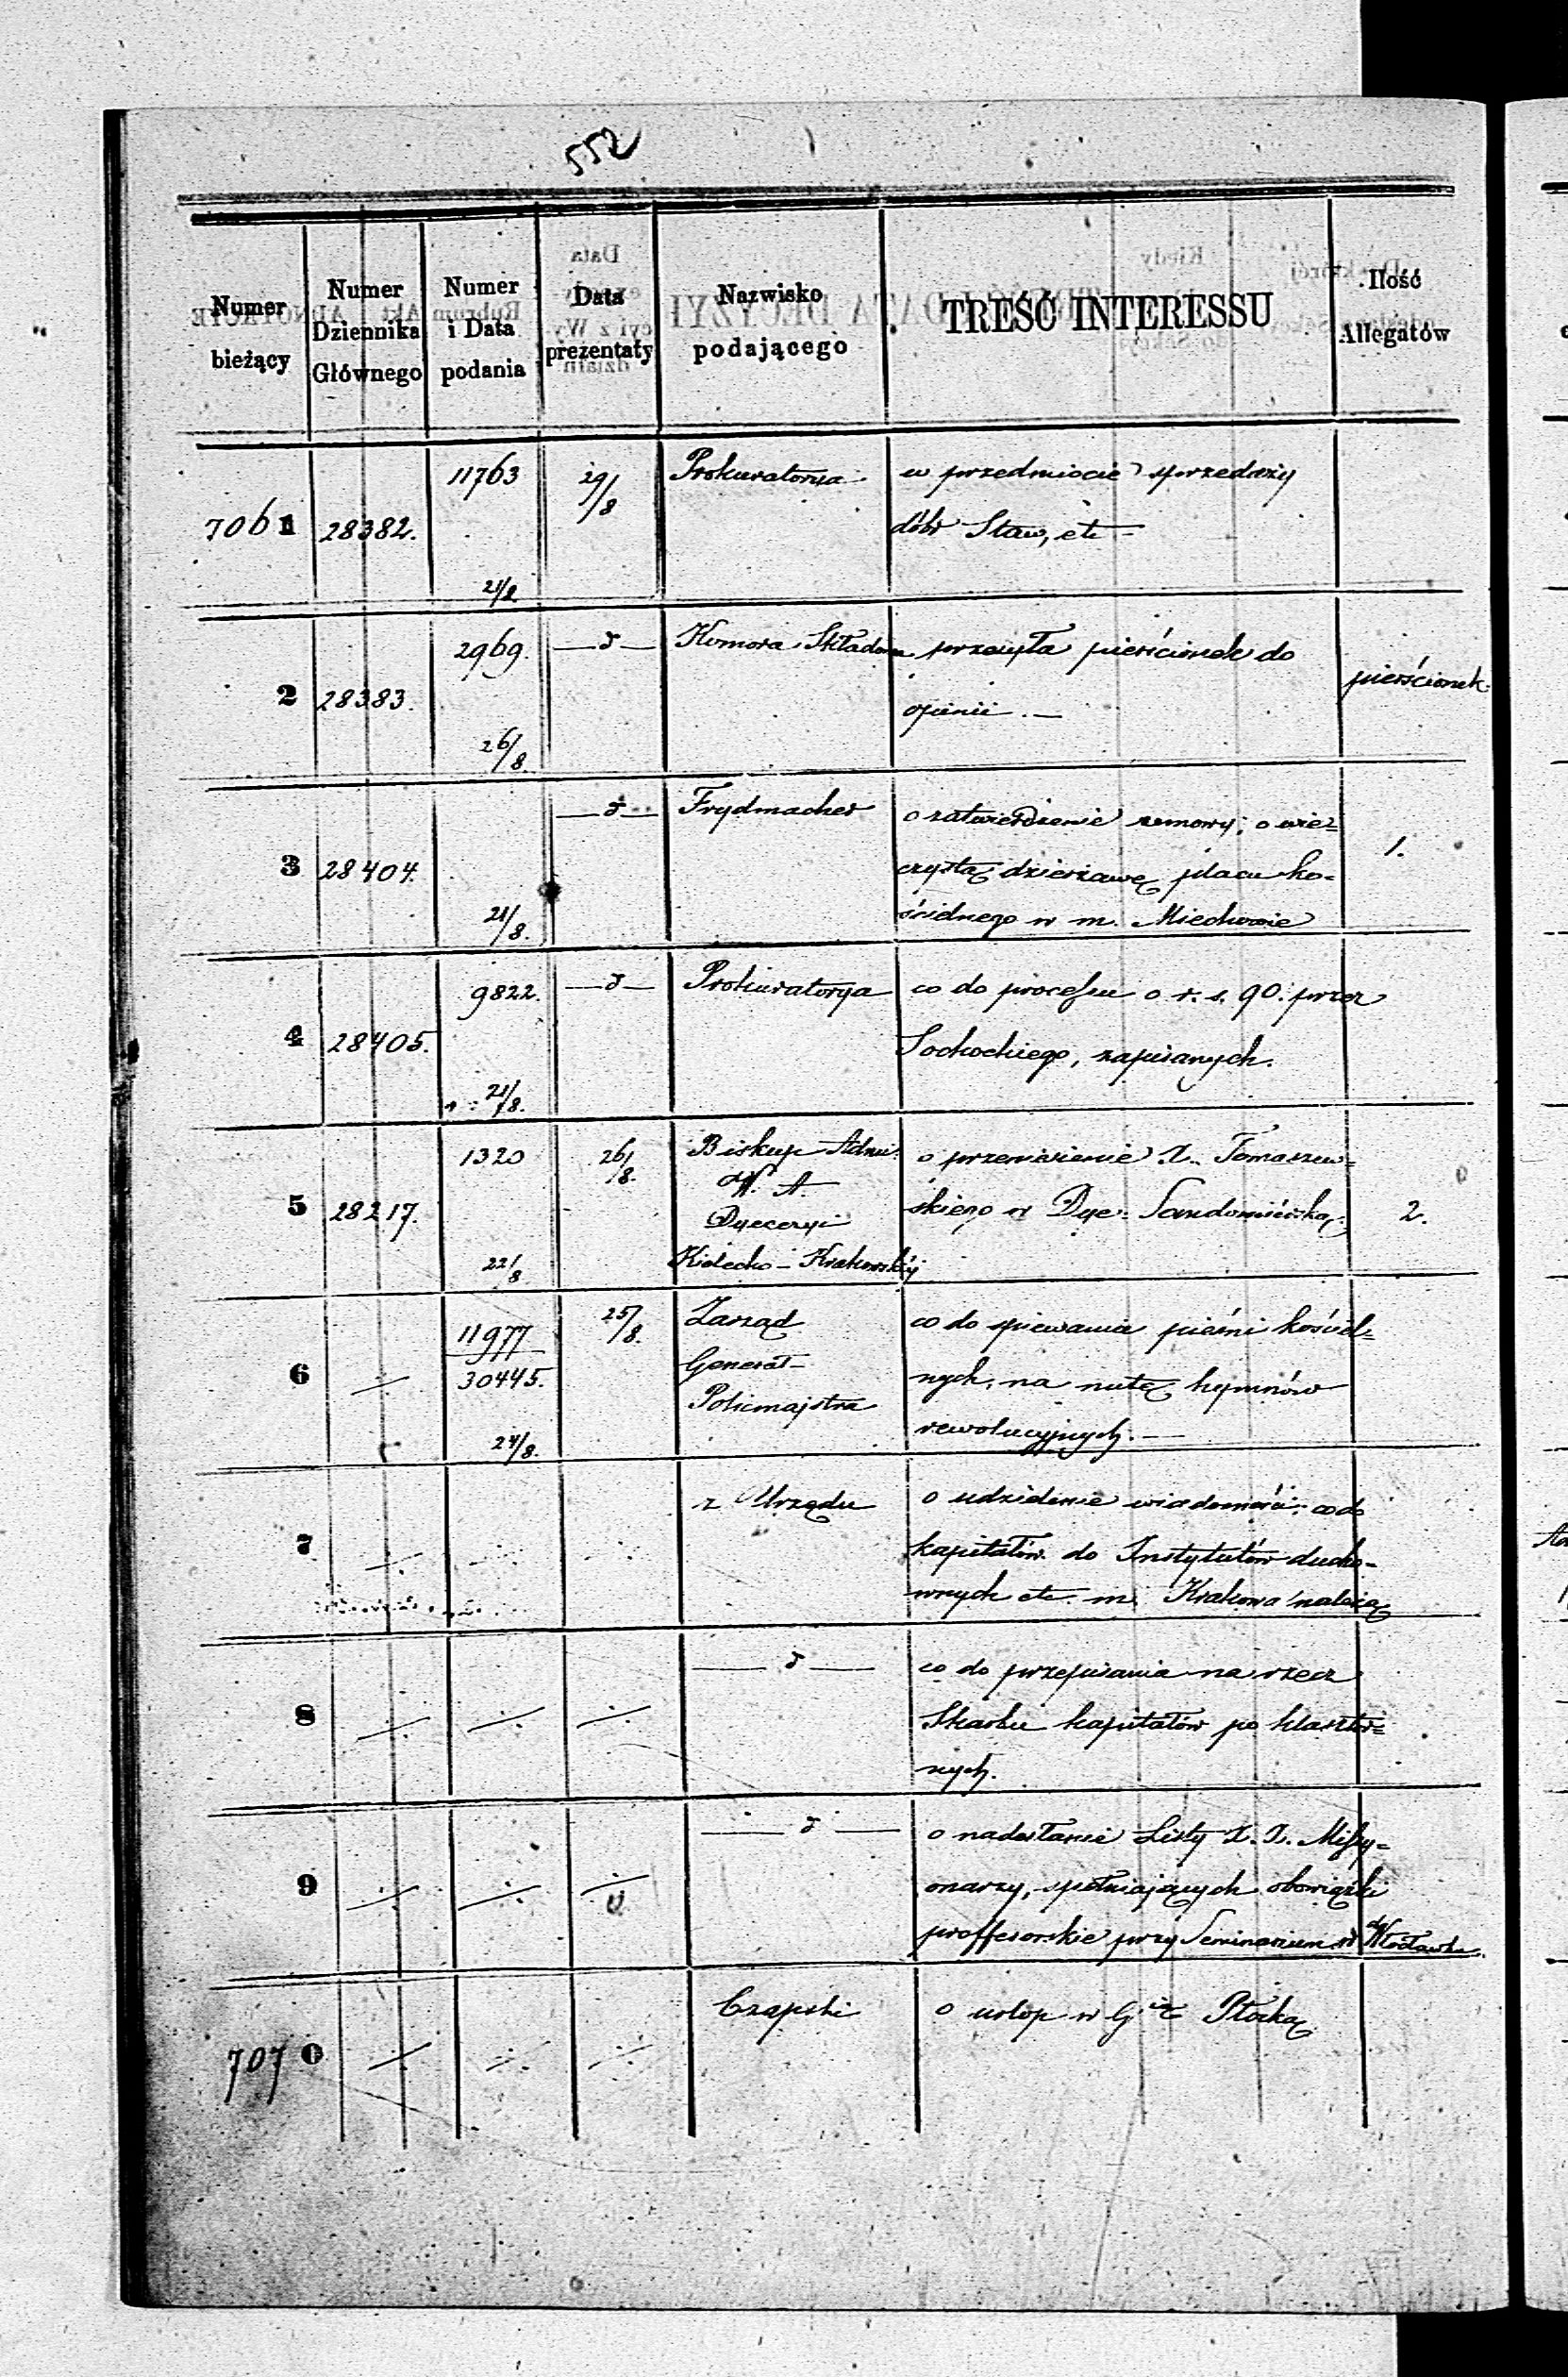 552
Numer bieżący
Numer Dziennika Głównego
Numer i Data podania
Data prezentaty
Nazwisko podającego
TREŚĆ INTERESSU
Ilość Allegatów
7061 28382. 11763 21/8 29/8 Prokuratorya w przedmiocie sprzedaży
dóbr Staw, etc —
2 28383. 2969. 26/8. —d— Komora Składowa przesyła pierścionek do
opinii. — pierścionek
3 28404. 21/8. —d— Frydmacher o zatwierdzenie umowy, o wie=
czystą dzierżawę placu ko=
ścielnego w m. Miechowie 1.
4 28405. 9822. 21/8. —d— Prokuratorya co do processu o r. s. 90. przez
Sochockiego, zapisanych.
5 28217. 1320 22/8 26/8. Biskup Admi:
W. A.
Dyecezyi
Kielecko - Krakowskiéj
o przeniesienie X. Tomaszew=
skiego w Dye: Sandomierską. 2.
6 ÷ 11977
30445. 24/8. 25/8. Zarząd
Generał-
Policmajstra
co do spiewania pieśni kościel=
nych, na nutę hymnów
rewolucyjnych. —
7 ÷ ÷ ÷ z Urzędu o udzielenie wiadomości: co do
kapitałów do Instytutówducho-
wnych etc. m. Krakowa należą
8 ÷ ÷ ÷ —d— co do przepisania na rzecz
Skarbu kapitałów po klasztor=
nych.
9 ÷ ÷ ÷ —d— o nadesłanie Listy X. X. Missy=
onarzy, spełniających obowiązki
professorskie przy Seminarium w Włocławku.
7070 ÷ ÷ ÷ Czapski o urlop w G. Płocką